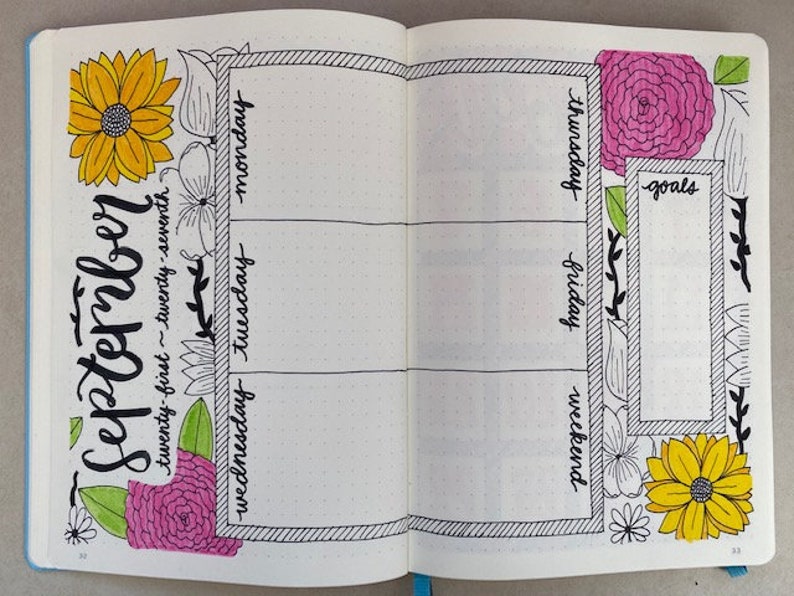 September
twenty-first ~ twenty-seventh
monday
tuesday
wednesday
thursday
friday
weekend
goals
32
33